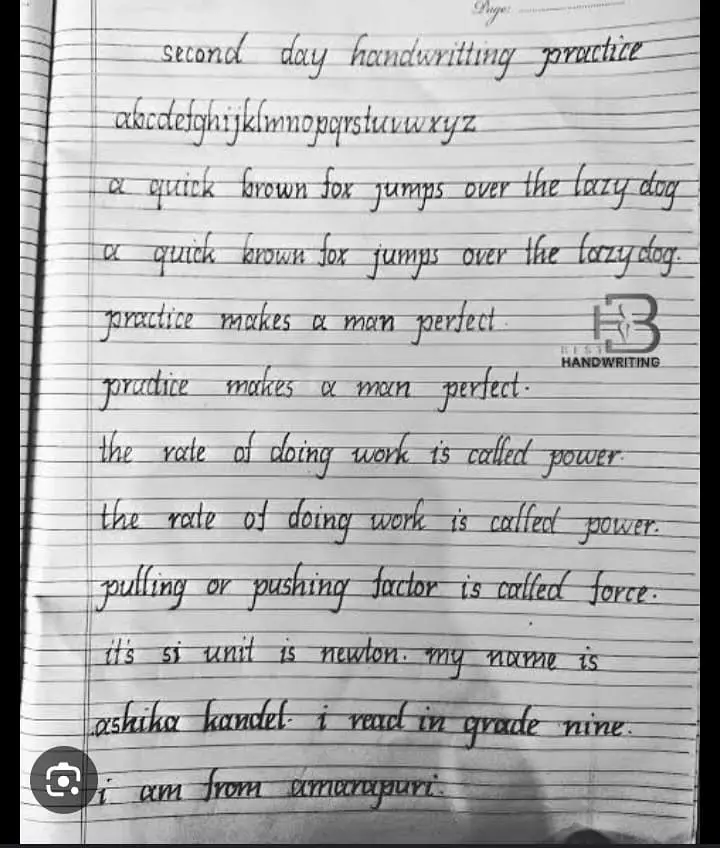 Page:
second day handwritting practice
abcdefghijklmnopqrstuvwxyz
a quick brown fox jumps over the lazy dog
a quick brown fox jumps over the lazy dog.
practice makes a man perfect.
BEST
HANDWRITING
practice makes a man perfect.
the rate of doing work is called power.
the rate of doing work is called power.
pulling or pushing factor is called force.
it's si unit is newton. my name is
ashika kandel. i read in grade nine.
i am from amarapuri.